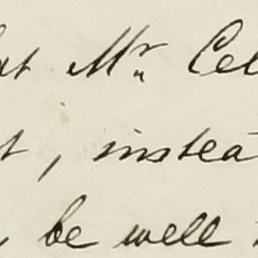 at Mr. Cel
t, instea
be well